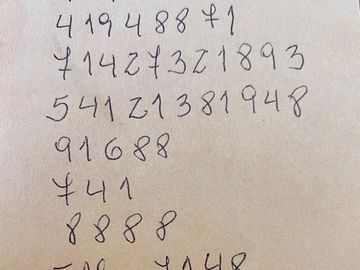 41948871
71427321893
54121381948
91688
741
8888